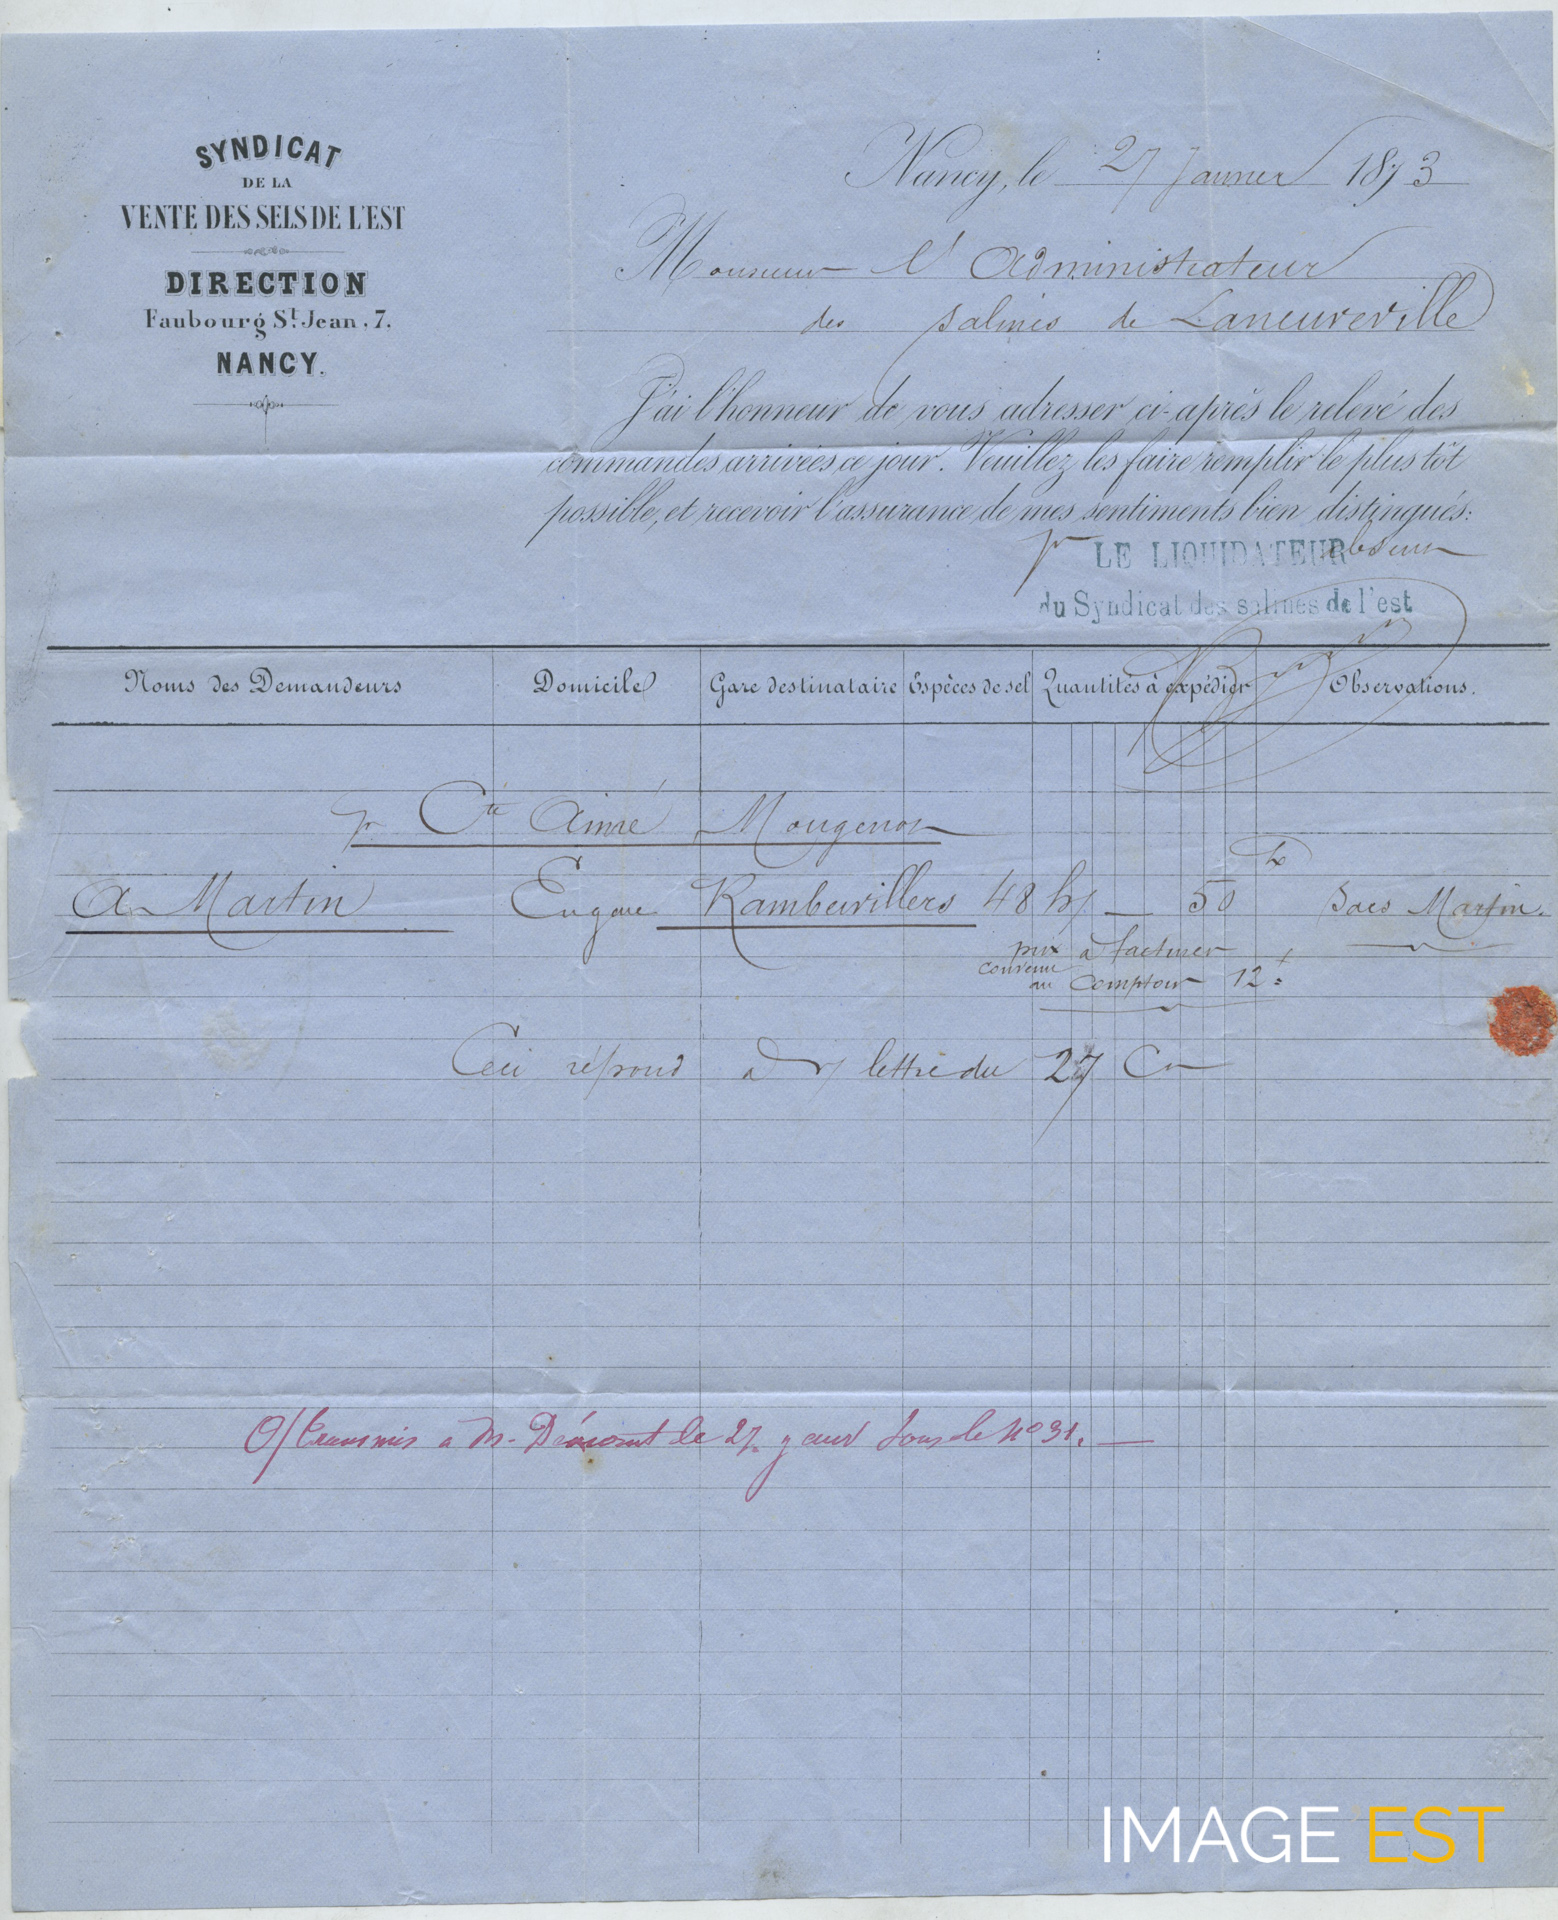 SYNDICAT
DE LA
VENTE DES SELS DE L'EST
DIRECTION
Faubourg St. Jean, 7.
NANCY.
Nancy, le 27 Janvier 1873
Monsieur l'Administrateur
des Salines de Laneuveville
J'ai l'honneur de vous adresser ci-après le relevé des
commandes arrivées ce jour. Veuillez les faire remplir le plus tôt
possible, et recevoir l'assurance de mes sentiments bien distingués.
pr LE LIQUIDATEUR absent
du Syndicat des salines de l'est
Noms des Demandeurs Domicile Gare destinataire Espèces de sel Quantités à expédier Observations.
pr Cie Aimé Mougenot
A. Martin En gare Rambervillers 48 h/ — 50 Sacs Martin.
prix à facturer
convenu
au Comptoir 12 f
Ceci répond à v/ lettre du 27 Ct
O/ transmis a M. le 27 janvr sous le No 31. —
IMAGE EST